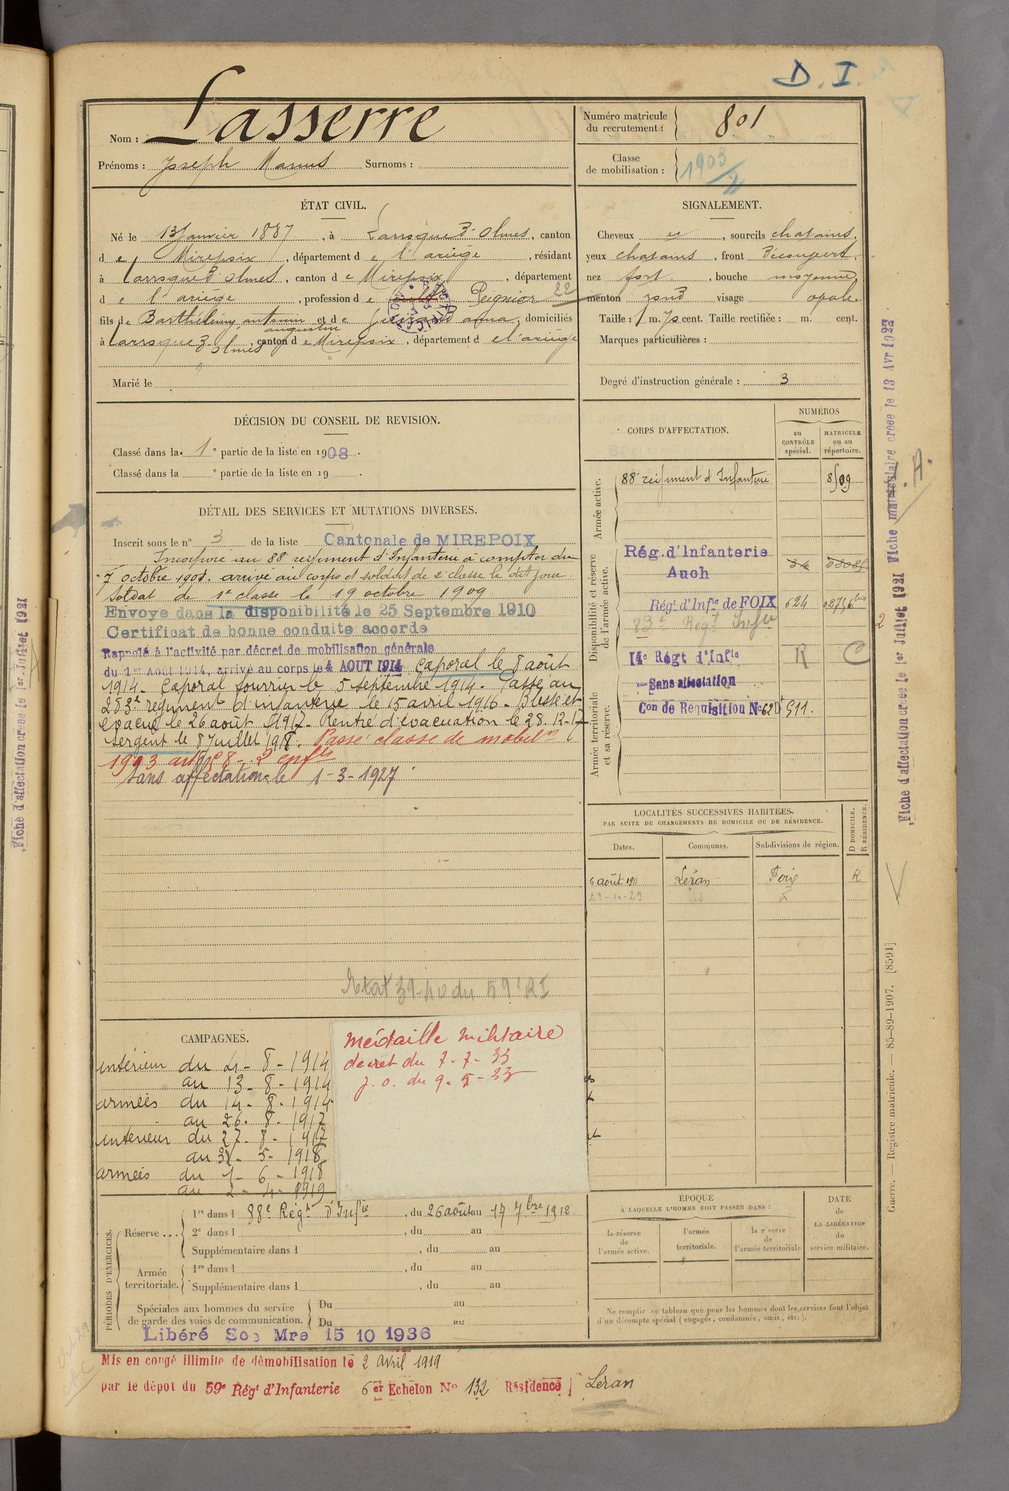 D. I.
Nom : Lasserre
Prénoms : Joseph Marius Surnoms :
Numéro matricule du recrutement : 801
Classe de mobilisation : 1903/2
ÉTAT CIVIL.
Né le 13 Janvier 1887, à Laroque d'Olmes, canton
de Mirepoix, département de l'ariège, résidant
à Laroque d'Olmes, canton de Mirepoix, département
d e l'ariège, profession de Peignior 22
fils de Barthélemy antonin et de anna, domiciliés
augustin
à Laroque d'Olmes, canton de Mirepoix, département d e l'ariège
Marié le
SIGNALEMENT.
Cheveux et, sourcils chatains,
yeux chatains, front découvert,
nez fort, bouche moyenne,
menton rond visage ovale
Taille : 1 m. 70 cent. Taille rectifiée : m. cent.
Marques particulières :
Degré d'instruction générale : 3
DÉCISION DU CONSEIL DE REVISION.
Classé dans la 1e partie de la liste en 1908.
Classé dans la e partie de la liste en 19
DÉTAIL DES SERVICES ET MUTATIONS DIVERSES.
Inscrit sous le n° 3 de la liste Cantonale de MIREPOIX
Incorporé au 88e régiment d'Infanterie à compter du
7 octobre 1908. arrivé au corps et soldat de 2e classe le dit jour
Soldat de 1e classe le 19 octobre 1909
Envoyé dans la disponibilité le 25 Septembre 1910
Certificat de bonne conduite accordé
Rappelé à l'activité par décret de mobilisation générale
du 1er Août 1914, arrivé au corps le 4 AOUT 1914 Caporal le 8 août
1914. Caporal fourrier le 5 septembre 1914. Passé au
283e régiment d'infanterie le 15 avril 1916. Blessé et
évacué le 26 août 1917. Rentré d'évacuation le 28.12.17
Sergent le 8 Juillet 1918. Passé classe de mobeln
1903 art 58 - 2 enfts
Sans affectation le 1-3-1927
Etat 39-40 du 59e RI
CORPS D'AFFECTATION.
NUMÉROS
au CONTRÔLE spécial.
MATRICULE ou au répertoire.
Armée active.
88e régiment d'Infanterie 8509
Disponibilité et réserve de l'armée active.
Rég. d'Infanterie
Auch
Régt d'Infie de FOIX 624
83e Régt Infie
14e Régt d'Infie R C
Sans affectation
Con de Requisition No 620 511.
Armée territoriale et sa réserve.
LOCALITÉS SUCCESSIVES HABITÉES.
PAR SUITE DE CHANGEMENTS DE DOMICILE OU DE RÉSIDENCE.
Dates. Communes. Subdivisions de région. D DOMICILE. R RÉSIDENCE.
6 août 1911 Léran Foix R
23-10-29
CAMPAGNES.
intérieur du 4-8-1914
au 13-8-1914
armées du 14-8-1914
au 26-8-1917
intérieur du 27-8-1917
au 31-5-1918
armées du 1-6-1918
au 2-4-1919
médaille militaire
décret du 7-7-33
j. o. du 9-7-33
PÉRIODES D'EXERCICES.
Réserve ... 1re dans l 88e Régt d'Infie, du 26 août au 17 7bre 1912
2e dans l , du au
Supplémentaire dans l , du au
Armée territoriale. 1re dans l , du au
Supplémentaire dans l , du au
Spéciales aux hommes du service de garde des voies de communication. Du au
Du au
Libéré Sce Mre 15 10 1936
ÉPOQUE
À LAQUELLE L'HOMME DOIT PASSER DANS :
la réserve de l'armée active.
l'armée territoriale.
la réserve de l'armée territoriale
DATE de LA LIBÉRATION du service militaire.
Ne remplir ce tableau que pour les hommes dont les services font l'objet
d'un décompte spécial (engagés, condamnés, omis, etc.).
Mis en congé illimité de démobilisation le 2 avril 1919
par le dépôt du 59e Régt d'Infanterie 6er Echelon No 132 Résidence Léran
Fiche matriculaire créée le 13 Avr 1922
Fiche d'affectation créée le 1er Juillet 1921
Guerre. — Registre matricule. — 85-89-1907. [8591]
Fiche d'affectation créée le 1er Juillet 1921